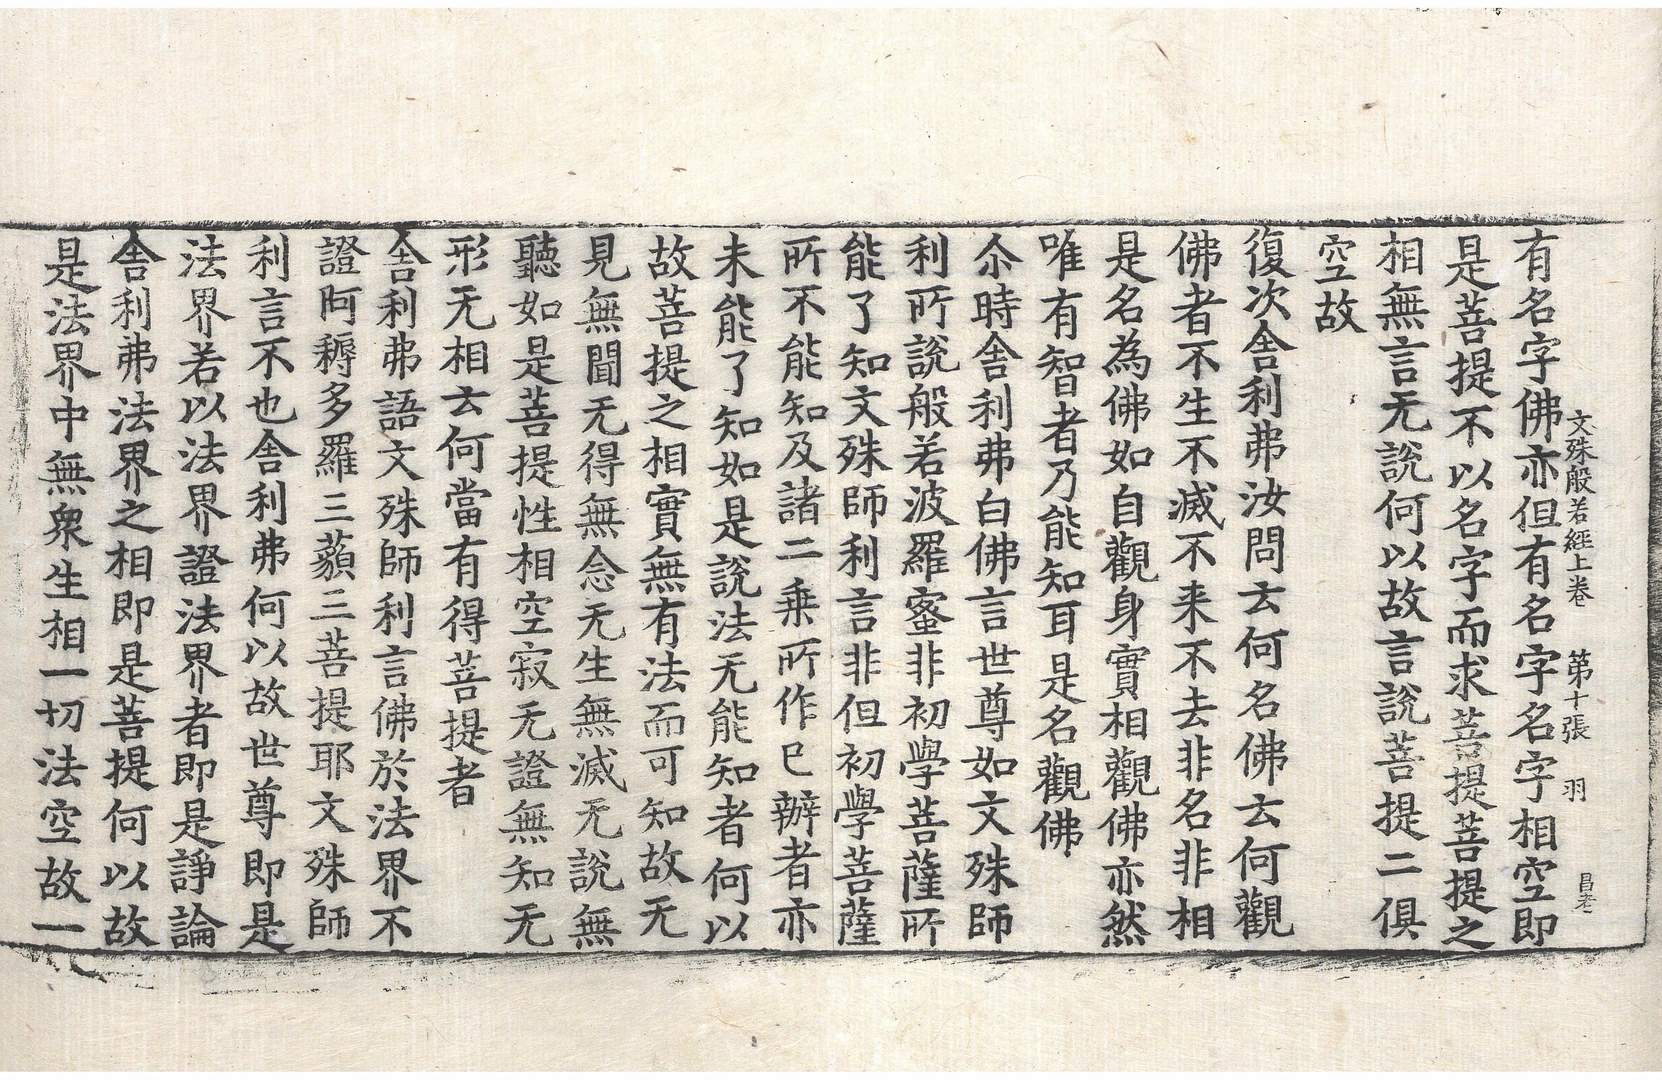 文殊般若經上卷　第十張　羽　昌老
有名字佛亦但有名字名字相空即
是菩提不以名字而求菩提菩提之
相無言无說何以故言說菩提二俱
空故
復次舍利弗汝問云何名佛云何觀
佛者不生不滅不来不去非名非相
是名為佛如自觀身實相觀佛亦然
唯有智者乃能知耳是名觀佛
尒時舍利弗白佛言世尊如文殊師
利所說般若波羅蜜非初學菩薩所
能了知文殊師利言非但初學菩薩
所不能知及諸二乗所作已辦者亦
未能了知如是說法无能知者何以
故菩提之相實無有法而可知故无
見無聞无得無念无生無滅无說無
聽如是菩提性相空寂无證無知无
形无相云何當有得菩提者
舍利弗語文殊師利言佛於法界不
證阿耨多羅三藐三菩提耶文殊師
利言不也舍利弗何以故世尊即是
法界若以法界證法界者即是諍論
舍利弗法界之相即是菩提何以故
是法界中無衆生相一切法空故一